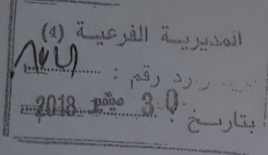 المديرية الفرعية (4)
ورد رقم :
بتاريخ : 30 سبتمبر 2018